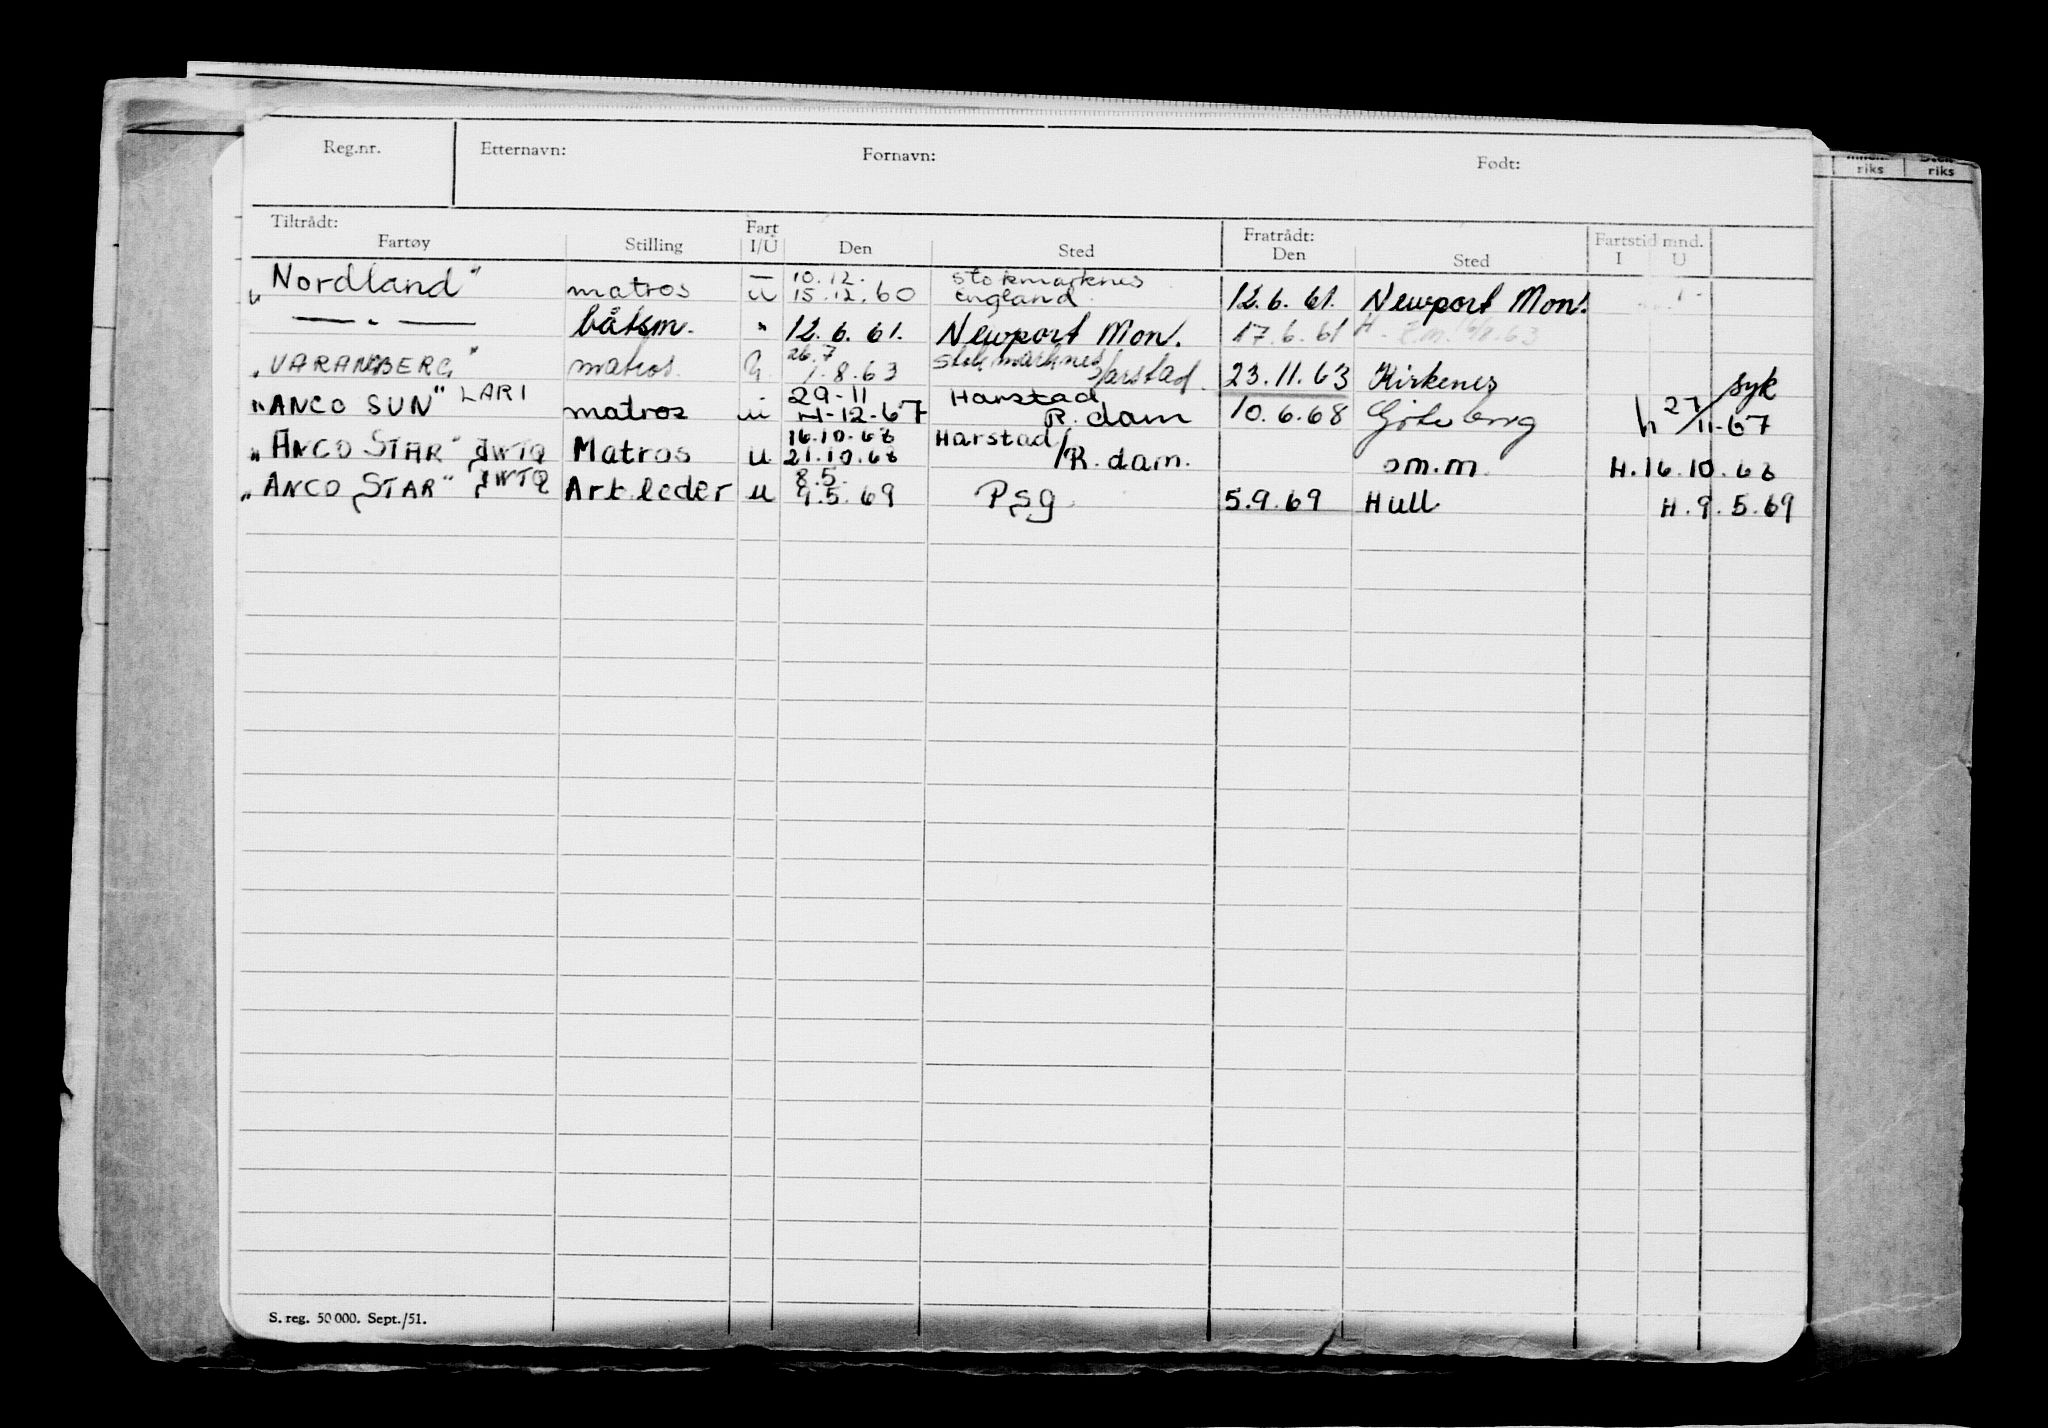 Reg.nr. Etternavn: Fornavn: Født:
Tiltrådt: Fart Fratrådt: Fartstid mnd.
Fartøy Stilling I/U Den Sted Den Sted I U
riks riks
10.12. Stokmarknes
„Nordland" matros u 15.12.60 England 12.6.61. Newport Mon.
— „ — båtsm. " 12.6.61. Newport Mon. 17.6.61 H.
26.7 Stokmarknes
„VARANGBERG" matros. 1.8.63 Harstad. 23.11.63 Kirkenes
29-11 Harstad syk
„ANCO SUN" LARI matros u 4-12-67 R.dam 10.6.68 Göteborg h 27/11-67
16.10.68 Harstad/
„ANCO STAR" JWTQ Matros u 21.10.68 R.dam. om.m H.16.10.68
8.5.
„ANCO STAR" JWTQ Arb.leder u 9.5.69 Psg 5.9.69 Hull H.9.5.69
S. reg. 50 000. Sept./51.